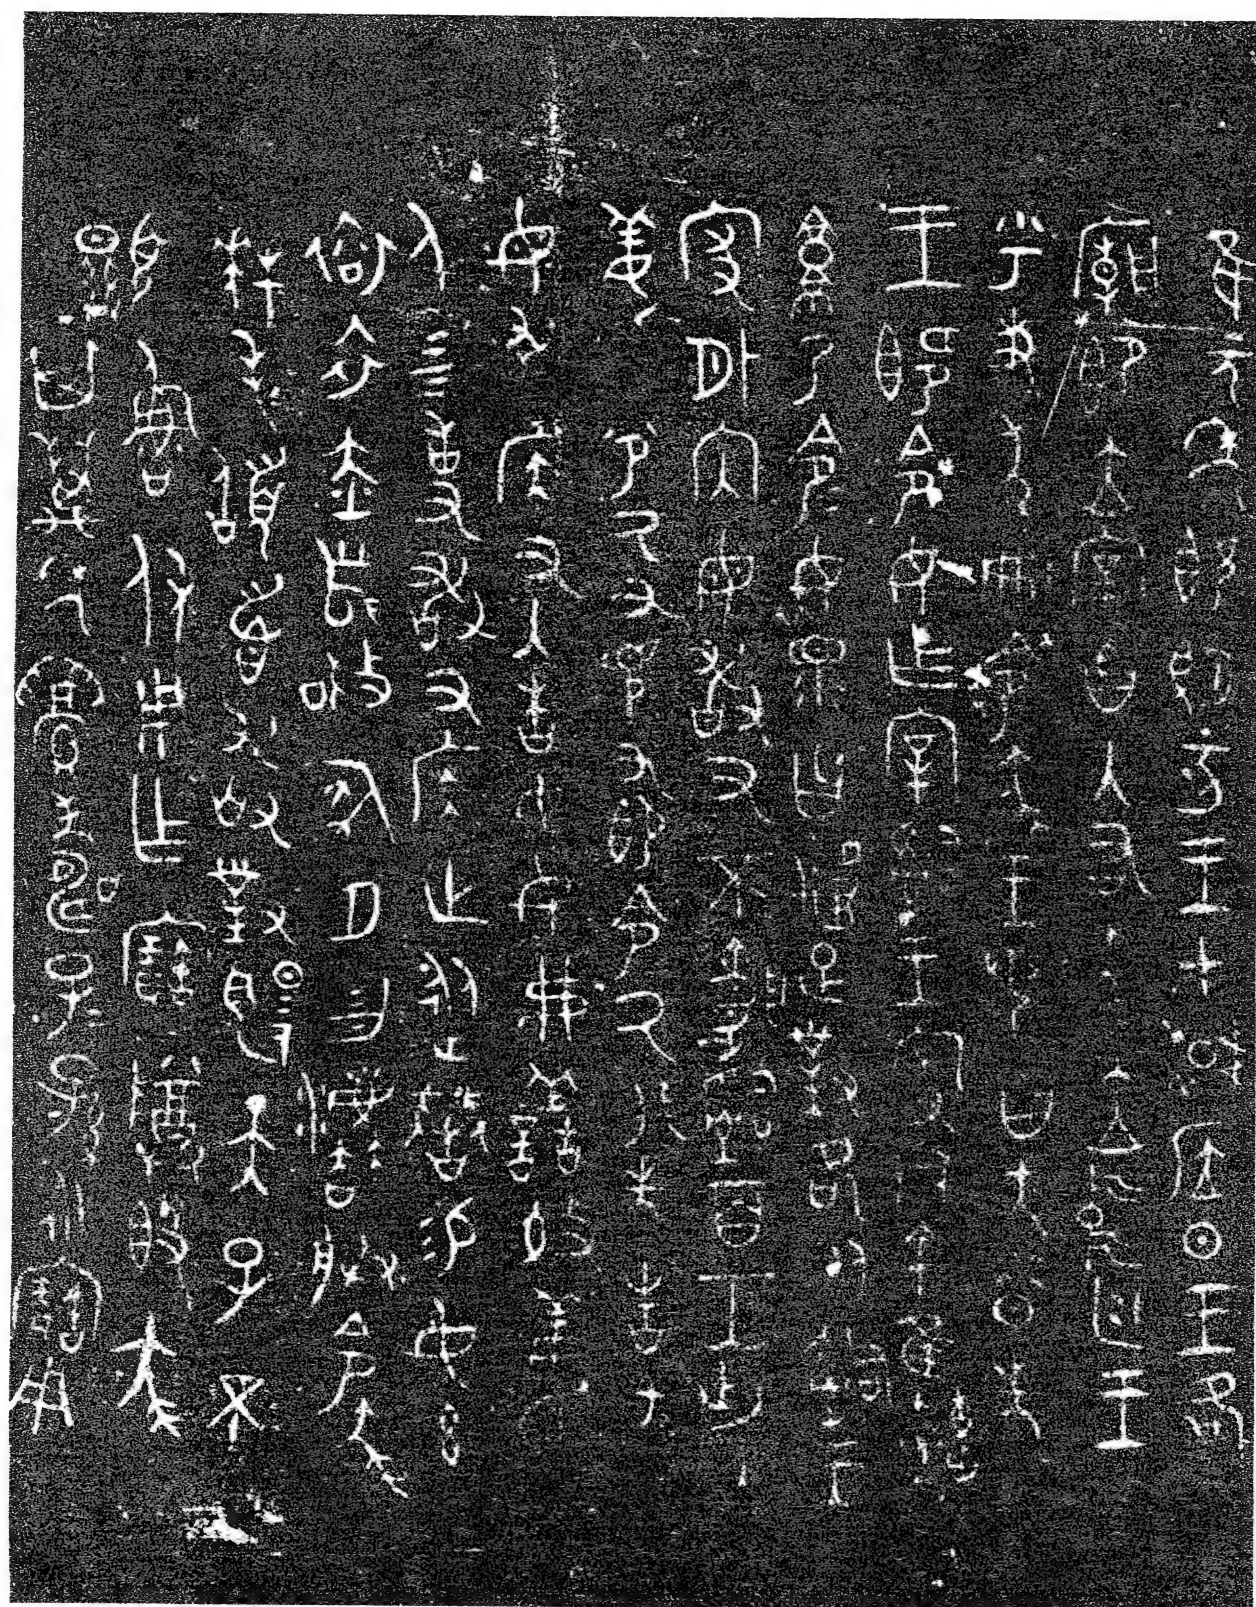 隹元年既望丁亥王才減应旦王各
廟即立宰曶入右蔡立中廷王
乎史尤冊令蔡王若曰蔡昔先
王既令女乍宰嗣王家今余隹
乃令令女眔曶疋對各死嗣王
家外內毋敢又不聞嗣百工出入
姜氏令氒又見又即令氒非先告蔡
毋敢疾又入告女毋弗善效姜氏
人勿事敢又疾止從獄易女玄
袞衣赤舄敬夙夕勿灋朕令蔡
拜手稽首敢對揚天子不
顯魯休用乍寶尊簋蔡
其萬年眉壽子子孫孫永寶用